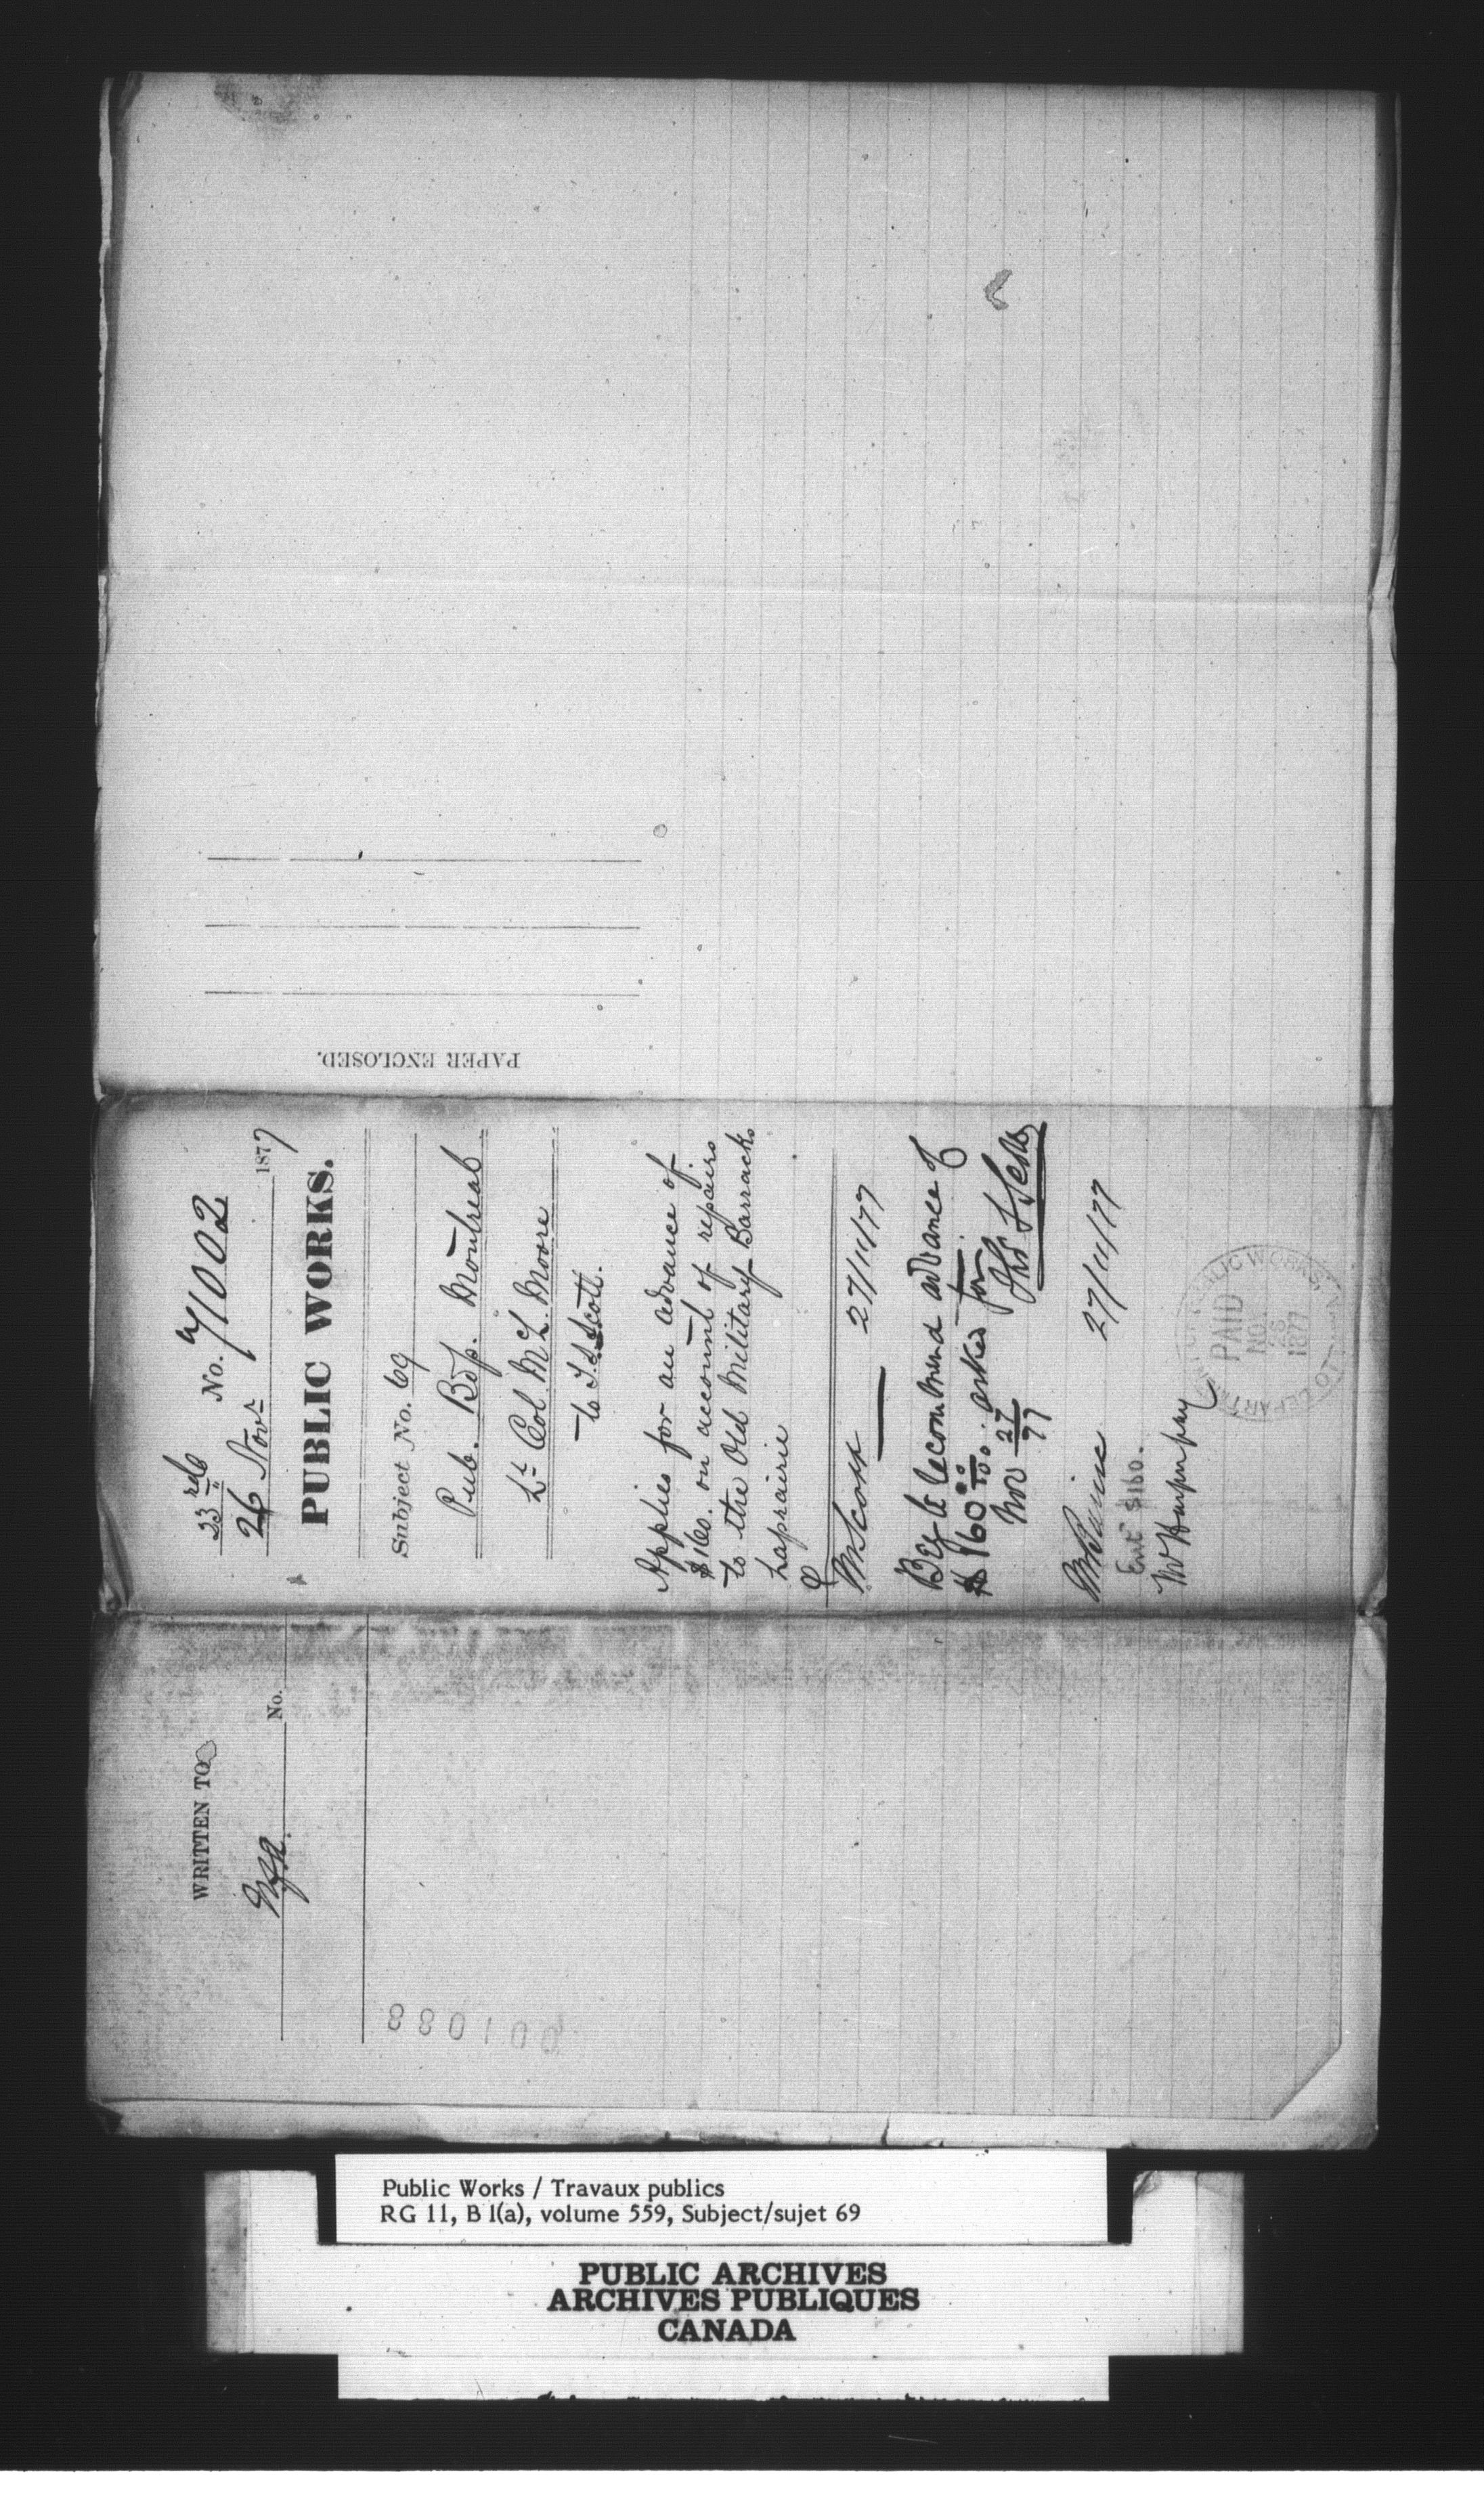 WRITTEN TO
No.
23rd
26 Novr
No. 71002
1877
PUBLIC WORKS.
Subject No. 69
Pub. Bdg. Montreal
Lt Col McL. Moore
to T.S. Scott.
Applies for an advance of
$160. on account of repairs
to the Old Military Barracks
Laprairie
Mr Scott 27/11/77
Beg to recommend advance of
$160 00/100 asked for.
Nov 27/77
Thos S Scott
27/11/77
Ent $160.
DEPARTMENT PUBLIC WORKS
PAID
NOV
28
1877
PAPER ENCLOSED.
001088
Public Works / Travaux publics
RG 11, B 1(a), volume 559, Subject/sujet 69
PUBLIC ARCHIVES
ARCHIVES PUBLIQUES
CANADA